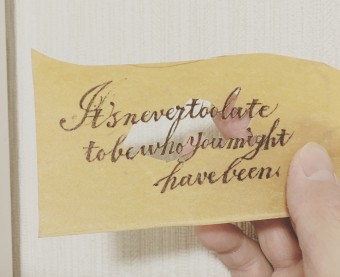 It's never too late
to be who you might
have been.